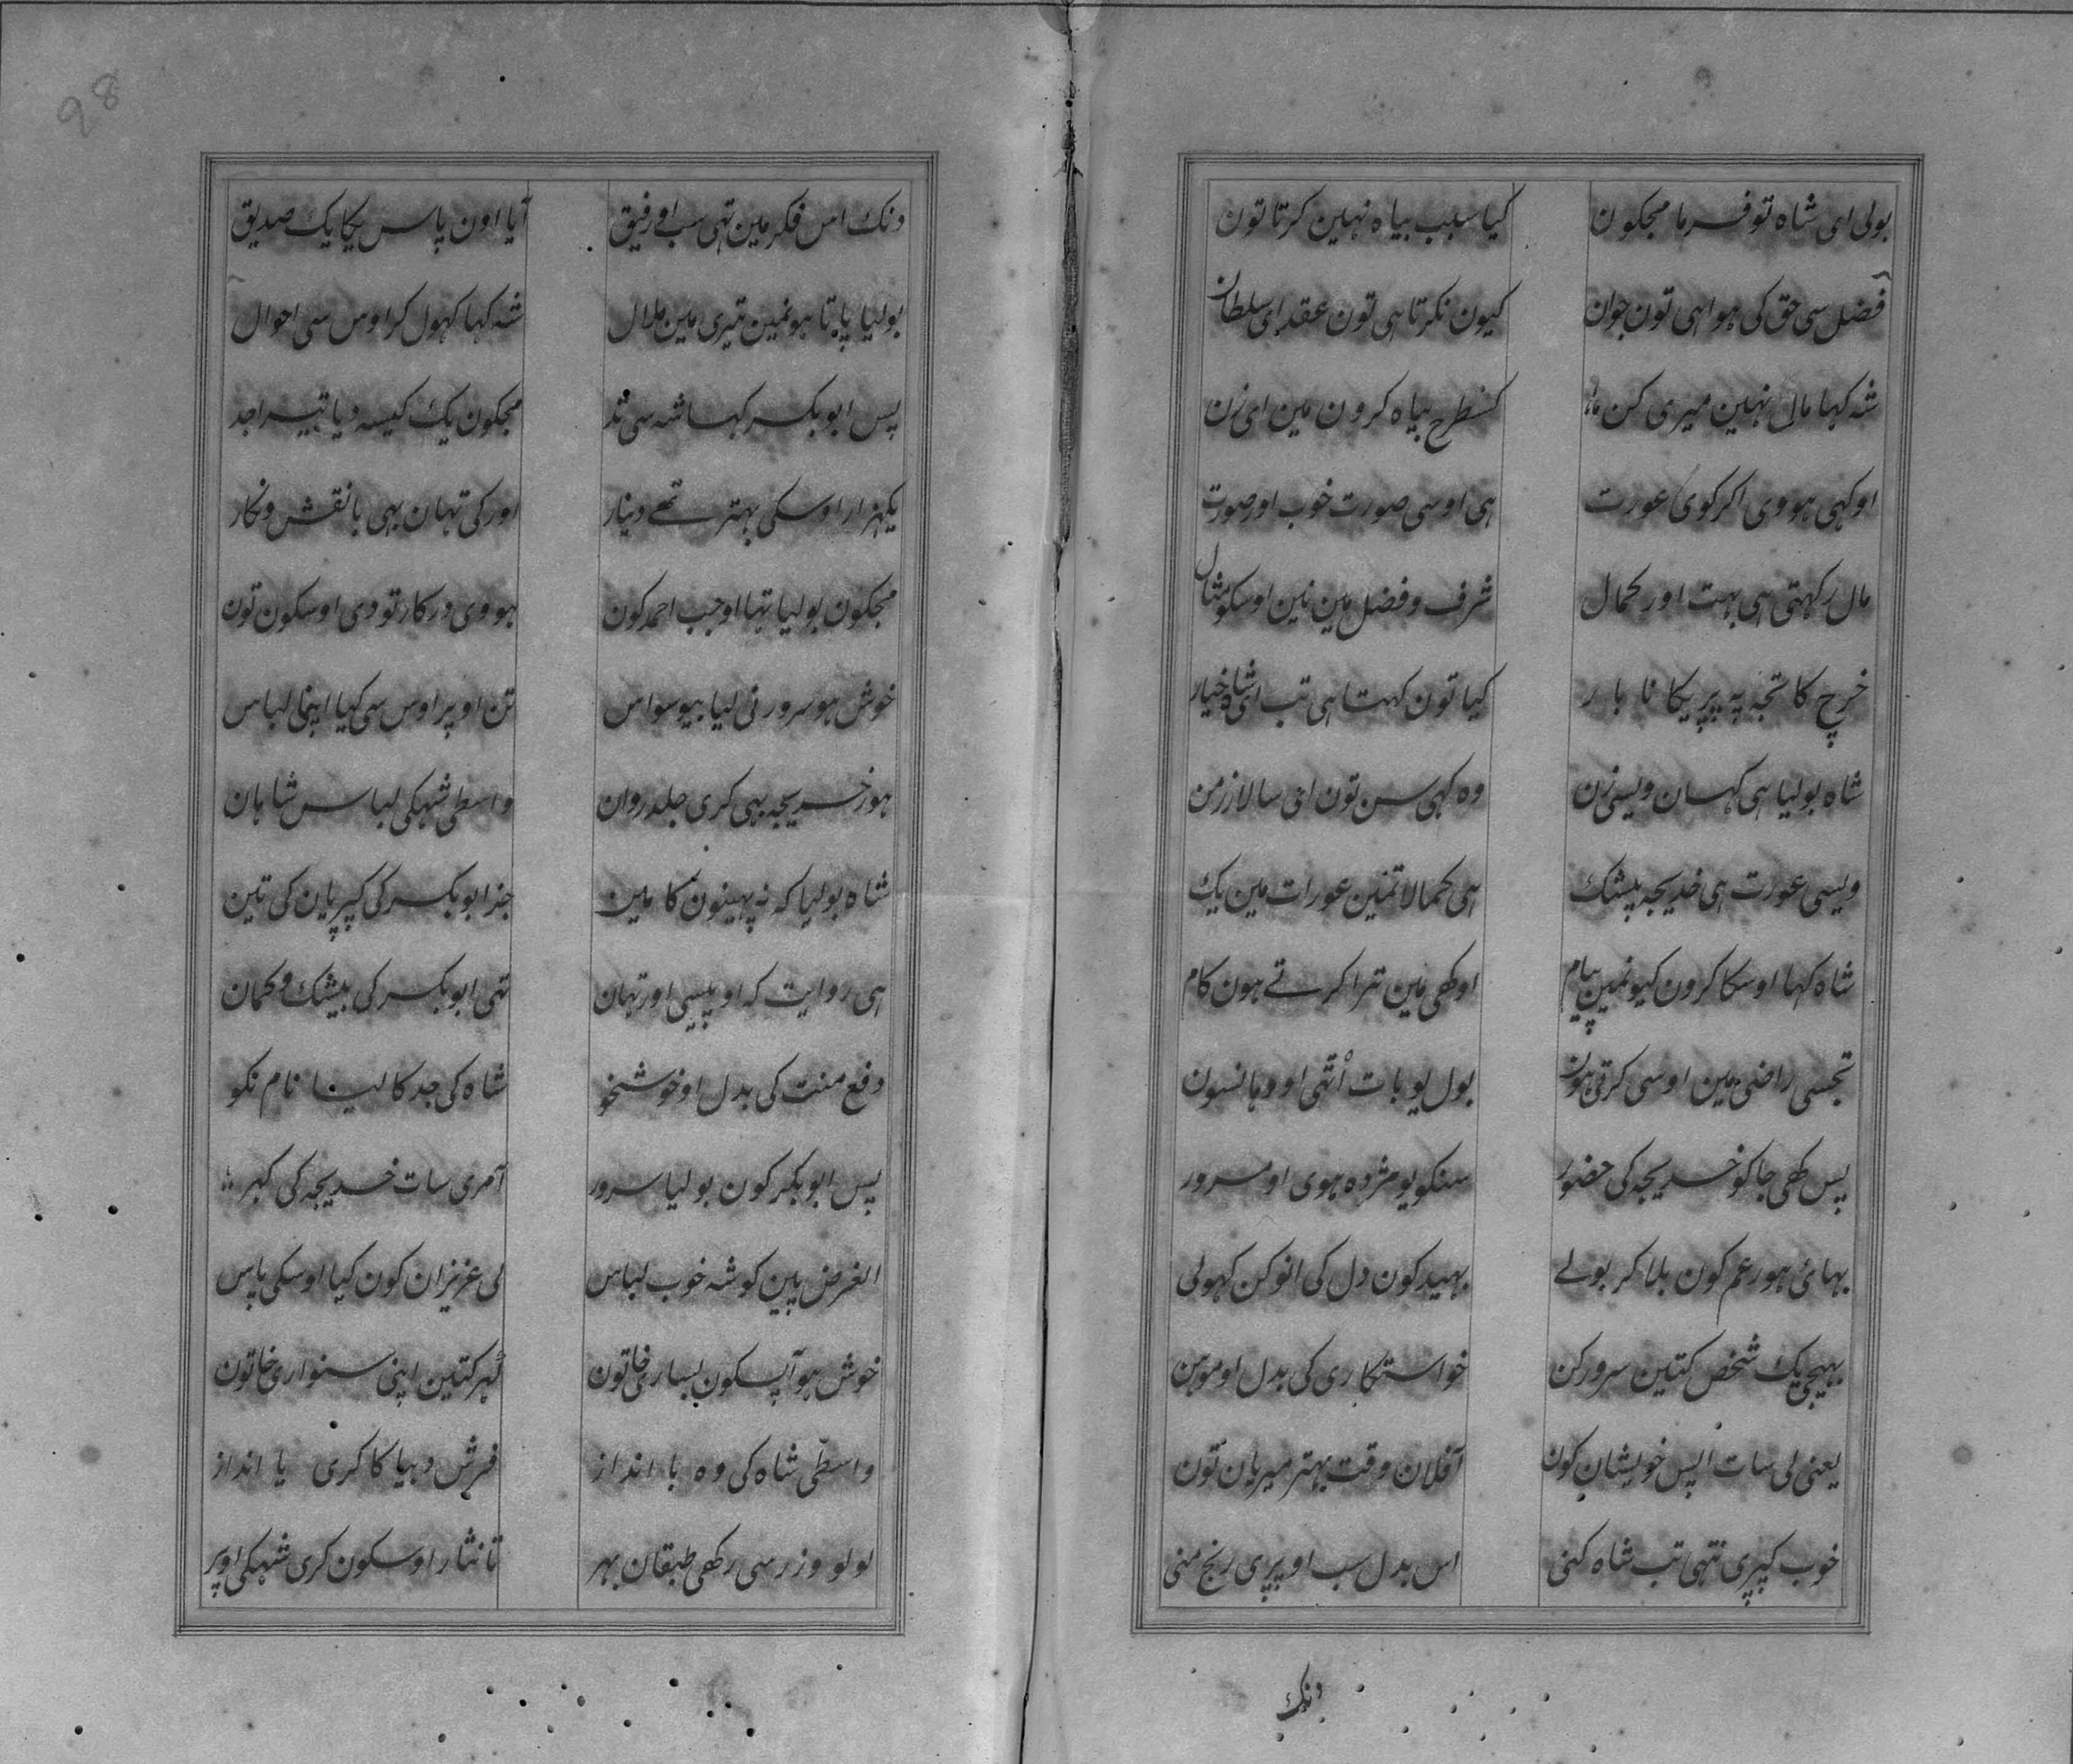 بولی ای شاہ تو فرما مجکون کیا سبب بیاہ نہین کرتا تون
فضل سی حق کی ہوا ہی تون جوان کیون نکرتا ہی تون عقد ای سلطان
شہ کہا مال نہین میری کن کسطرح بیاہ کرون مین ای زن
او کہی ہووی اکر کوی عورت ہی اوسی صورت خوب اور صورت
مال رکہتی ہی بہت اور کمال شرف و فضل مین نین اوسکو مثال
خرچ کا تجہ پہ پریکا نا بار کیا تون کہتا ہی تب ای شاہ خیار
شاہ بولیا ہی کہان ویسی زن وہ کہی سن تون ای سالار زمن
ویسی عورت ہی خدیجہ بیشک ہی کمالا تمین عورات مین یک
شاہ کہا اوسکا کرون کیونمین پیام او کھی مین ترا کرتے ہون کام
تجسی راضی مین اوسی کرتی ہون بول یو بات اُتھی او وہانسون
پس کھی جا کو خدیجہ کی حضور سنکو یو مژدہ ہوی او مسرور
بہائ ہور عم کون بلا کر بولے بہید کون دل کی انو کن کہولی
بہیجی یک شخص کتین سرور کن خواستکاری کی بدل او مومن
یعنی لی سات اپس خویشان کون آفلان وقت بہتر میریان تون
خوب کپری نتہی تب شاہ کنی اس بدل سب اوپری رنج منی
دنک
98
دنک اس فکر مین تہی سب او رفیق آیا اون پاس یکایک صدیق
بولیا پاتا ہونمین تیری مین ملال شہ کہا کہول کر اوس سی احوال
پس ابو بکر کہا شہ سی مجکون یک کیسہ دیا تیرا جد
یکہزار اوسکی بہتر تھے دینار اور کی تہان بہی با نقش و نکار
مجکون بولیا تہا او جب احمد کون ہووی درکار تو دی اوسکون تون
خوش ہو سرور نی لیا بیوسواس تن اوپر اوس سی کیا اپنا لباس
ہور خدیجہ بہی کری جلد روان واسطی شہکی لباس شاہان
شاہ بولیا کہ نہ پہینون کا مین جز ابو بکر کی کپریان کی تین
ہی روایت کہ او پیسی اور تہان تہی ابو بکر کی بیشک و کمان
دفع منت کی بدل او خوشخو شاہ کی جد کا لینا نام نکو
پس ابو بکر کون بولیا سرور آمری سات خدیجہ کی کہر
الغرض پہین کو شہ خوب لباس لی عزیزان کون کیا اوسکی پاس
خوش ہو آپسکون بساری خاتون کہر کتین اپنی سنواری خاتون
واسطی شاہ کی وہ با انداز فرش دیبا کا کری پا انداز
لولو و زر سی رکھی طبقان بہر تا نثار اوسکون کری شہکی اوپر